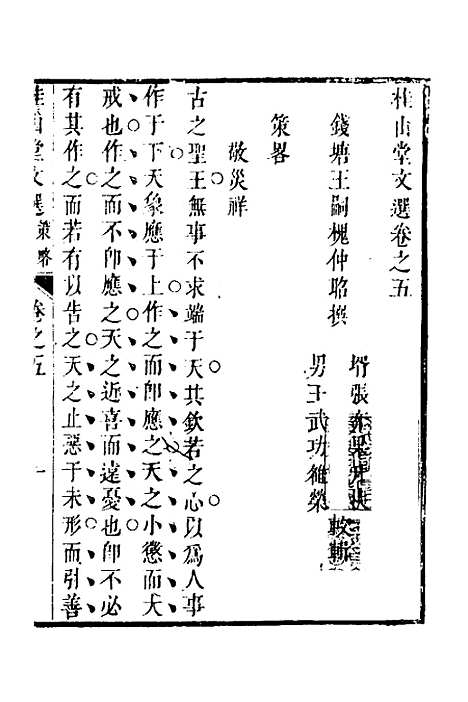 桂山堂文選卷之五
錢塘王嗣槐仲昭撰
壻張
男王武功維榮
較梓
策畧
敬災祥
古之聖王無事不求端于天其欽若之心以爲人事
作于下天象應于上作之而卽應之天之小懲而大
戒也作之而不卽應之天之近喜而遠憂也卽不必
有其作之而若有以告之天之止惡于未形而引善
桂山堂文選 策略 卷之五 一